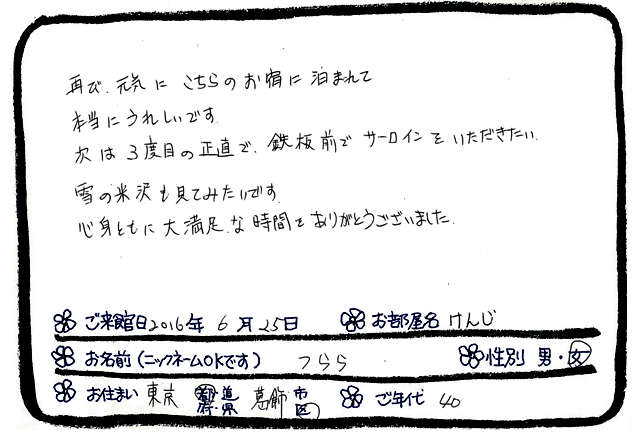 再び、元気に こちらのお宿に泊まれて
本当にうれしいです。
次は3度目の正直で、鉄板前でサーロインをいただきたい。
雪の米沢も見てみたいです。
心身ともに大満足な時間をありがとうございました。
ご来館日 2016年 6月 25日 お部屋名 けんじ
お名前(ニックネームOKです) つらら 性別 男・女
お住まい 東京 都・道・府・県 葛飾 市・区 ご年代 40